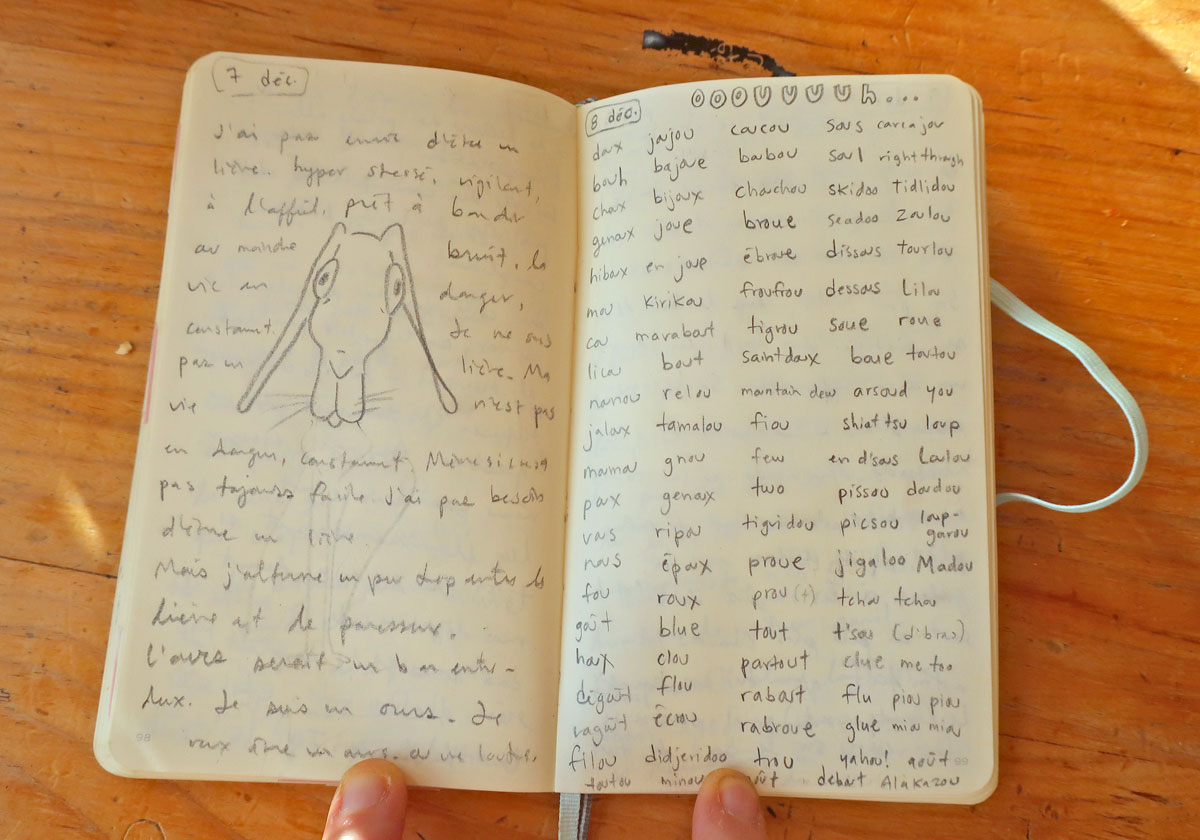 7 déc.
J'ai pas envie d'être un
lièvre. hyper stressé, vigilant,
à l'affût, prêt à bondir
au moindre bruit, la
vie en danger,
constamment. Je ne suis
pas un lièvre. Ma
vie n'est pas
en danger, constamment. Même si c'est
pas toujours facile. J'ai pas besoin
d'être un lièvre.
Mais j'alterne un peu trop entre le
lièvre et le paresseux.
L'ours serait un bon entre-
deux. Je suis un ours. Je
veux être un ours. ou une loutre.
98
8 déc. OOOUUUUH...
doux joujou coucou sous carcajou
bouh bajoue babou soul right through
choux bijoux chouchou skidoo tidlidou
genoux joue broue seadoo zoulou
hiboux en joue ébroue dissous tourlou
mou kirikou froufrou dessous Lilou
cou marabout tigrou soue roue
licou bout saindoux boue toutou
nounou relou mountain dew arsoud you
jaloux tamalou fiou shiattsu loup
mamou gnou few en d'sous Loulou
poux genoux two pissou doudou
vous ripou tiguidou picsou loup-garou
nous époux proue jigaloo Madou
fou roux prou(t) tchou tchou
goût blue tout t'sous (d'bras)
houx clou partout clue me too
dégoût flou rabout flu piou piou
ragoût écrou rabroue glue miou miou
filou didjeridoo trou yahou! août
toutou minou debout Alakazou
99